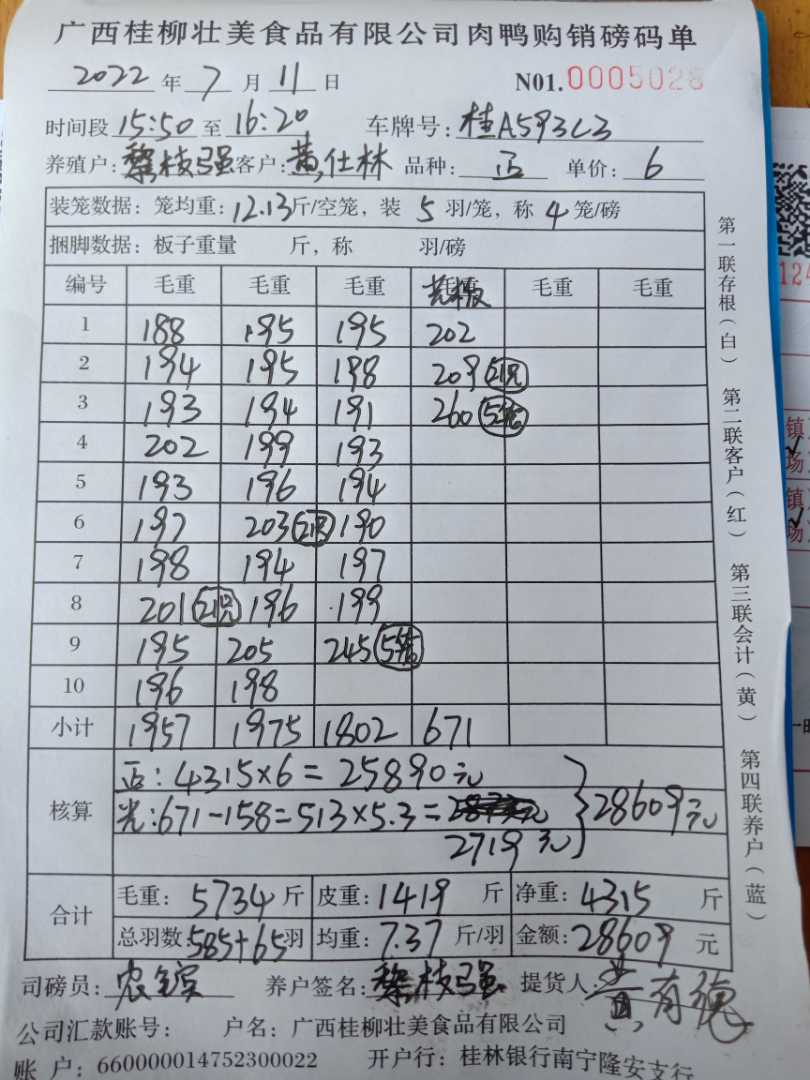 广西桂柳壮美食品有限公司肉鸭购销磅码单
2022 年 7 月 11 日 N01.0005028
时间段 15:50 至 16:20 车牌号: 桂A593C3
养殖户: 黎枝强 客户: 黄仕林 品种: 正 单价: 6
装笼数据: 笼均重: 12.13 斤/空笼, 装 5 羽/笼, 称 4 笼/磅
捆脚数据: 板子重量 斤, 称 羽/磅
编号 毛重 毛重 毛重 毛重 毛重
1 188 195 195 202
2 194 195 198 209 21只
3 193 194 191 260
4 202 199 193
5 193 196 194
6 197 203 21只 190
7 198 194 197
8 201 21只 196 199
9 195 205 245
10 196 198
小计 1957 1975 1802 671
核算 正: 4315×6=25890元
光: 671-158=513×5.3= 28609元
2719元
合计 毛重: 5734 斤 皮重: 1419 斤 净重: 4315 斤
总羽数: 585+65 羽 均重: 7.37 斤/羽 金额: 28609 元
司磅员: 养户签名: 黎枝强 提货人: 黄有德
公司汇款账号: 户名: 广西桂柳壮美食品有限公司
账 户: 660000014752300022 开户行: 桂林银行南宁隆安支行
第一联存根(白) 第二联客户(红) 第三联会计(黄) 第四联养户(蓝)
124
镇
场
镇
场